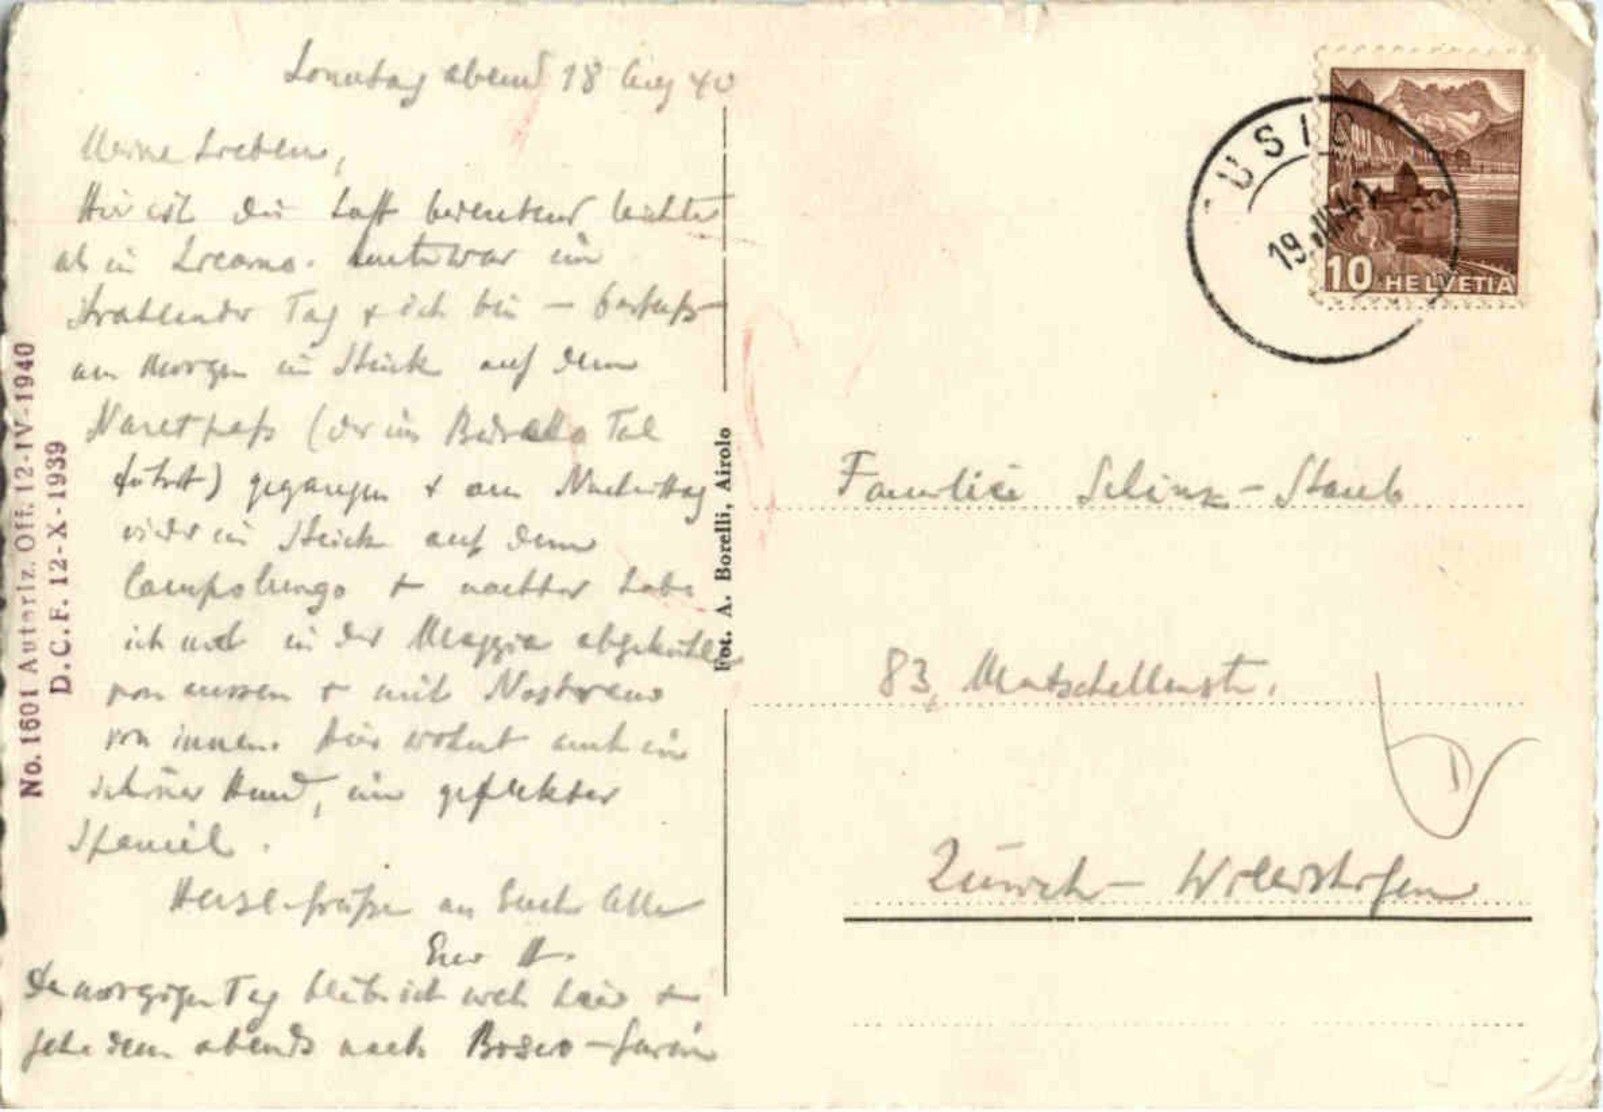 Sonntag abend 18 Aug 40
Meine Lieben,
Hier ist die Luft bedeutend leichter
als in Locarno. heute war ein
strahlender Tag + ich bin — barfuss
am Morgen ein Stück auf dem
Naretpass (der ins Bedretto Tal
führt) gegangen + am Nachmittag
wieder ein Stück auf dem
Campolungo + nachher habe
ich mich in der Maggia abgekühlt
von aussen + mit Nostrano
von innen. Hier wohnt auch ein
schöner Hund, ein gefleckter
Spaniel.
Herzl. Grüsse an Euch Alle
Euer H.
Den morgigen Tag bleibe ich noch hier +
gehe dann abends nach Bosco-Gurin
No. 1601 Autoriz. Off. 12-IV-1940
D.C.F. 12-X-1939
Fot. A. Borelli, Airolo
19.VIII.
10 HELVETIA
Familie Schinz-Staub
83, Mutschellenstr.
Zürich-Wollishofen